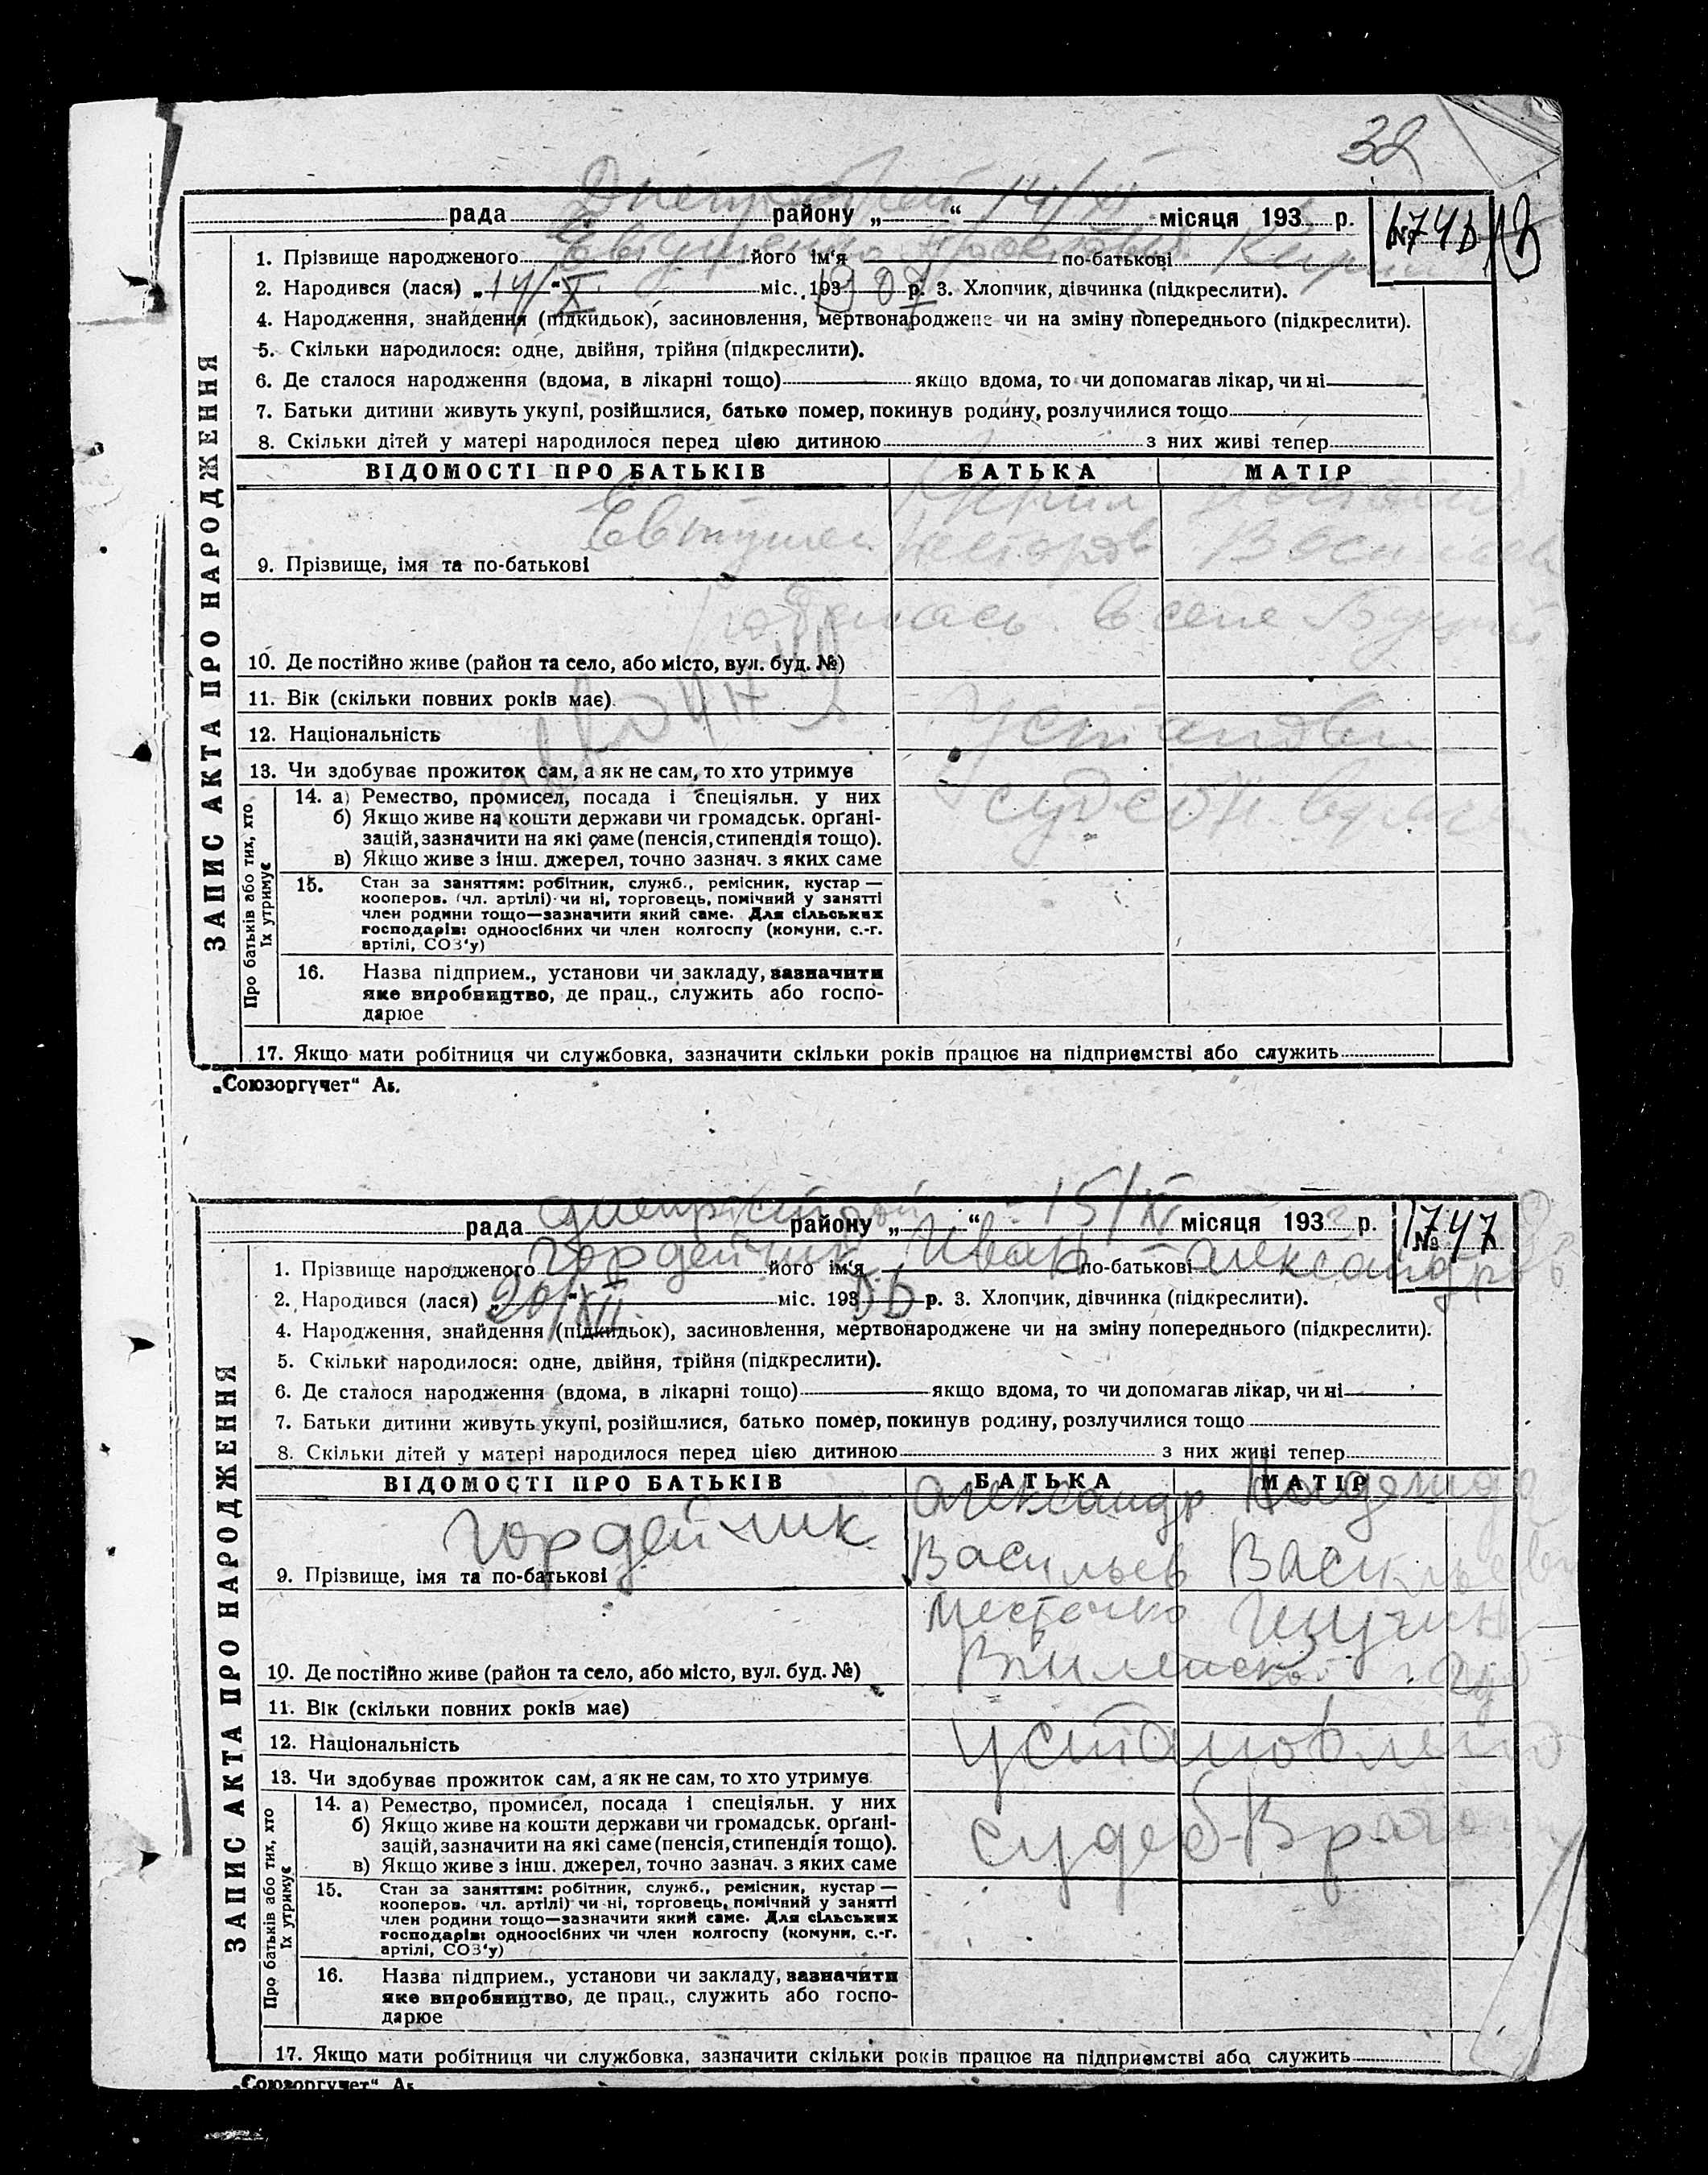 38
рада районуу „ “ 14/XI місяця 193 р.
№ 1746
1. Прізвище народженого його ім'я по-батькові
2. Народився (лася) „14/“ X міс. 1907 р. 3. Хлопчик, дівчинка (підкреслити).
4. Народження, знайдення (підкидьок), засиновлення, мертвонароджене чи на зміну попереднього (підкреслити).
5. Скільки народилося: одне, двійня, трійня (підкреслити).
6. Де сталося народження (вдома, в лікарні тощо) якщо вдома, то чи допомагав лікар, чи ні
7. Батьки дитини живуть укупі, розійшлися, батько помер, покинув родину, розлучилися тощо
8. Скільки дітей у матері народилося перед цією дитиною з них живі тепер
ЗАПИС АКТА ПРО НАРОДЖЕННЯ
ВІДОМОСТІ ПРО БАТЬКІВ БАТЬКА МАТІР
9. Прізвище, імя та по-батькові
в селе
10. Де постійно живе (район та село, або місто, вул. буд. №)
11. Вік (скільки повних років має)
12. Національність
13. Чи здобуває прожиток сам, а як не сам, то хто утримує
Про батьків або тих, хто їх утримує
14. а) Ремество, промисел, посада і спеціяльн. у них
б) Якщо живе на кошти держави чи громадськ. орґані-
зацій, зазначити на які саме (пенсія, стипендія тощо).
в) Якщо живе з інш. джерел, точно зазнач. з яких саме
15. Стан за заняттям: робітник, служб., ремісник, кустар —
кооперов. (чл. артілі) чи ні, торговець, помічний у занятті
член родини тощо—зазначити який саме. Для сільських
господарів: одноосібних чи член колгоспу (комуни, с.-г.
артілі, СОЗ'у)
16. Назва підприєм., установи чи закладу, зазначити
яке виробництво, де прац., служить або госпо-
дарює
17. Якщо мати робітниця чи службовка, зазначити скільки років працює на підприємстві або служить
„Союзоргучет“
рада району „ “ 15/XI місяця 193 р.
№ 1747
1. Прізвище народженого Гордейчик його ім'я Иван по-батькові Александров
2. Народився (лася) „20/“ XII міс. 193 р. 3. Хлопчик, дівчинка (підкреслити).
4. Народження, знайдення (підкидьок), засиновлення, мертвонароджене чи на зміну попереднього (підкреслити).
5. Скільки народилося: одне, двійня, трійня (підкреслити).
6. Де сталося народження (вдома, в лікарні тощо) якщо вдома, то чи допомагав лікар, чи ні
7. Батьки дитини живуть укупі, розійшлися, батько помер, покинув родину, розлучилися тощо
8. Скільки дітей у матері народилося перед цією дитиною з них живі тепер
ЗАПИС АКТА ПРО НАРОДЖЕННЯ
ВІДОМОСТІ ПРО БАТЬКІВ БАТЬКА МАТІР
Гордейчик Александр
Васильев
9. Прізвище, імя та по-батькові
местечко
10. Де постійно живе (район та село, або місто, вул. буд. №)
11. Вік (скільки повних років має)
12. Національність
установлено
13. Чи здобуває прожиток сам, а як не сам, то хто утримує
Про батьків або тих, хто їх утримує
14. а) Ремество, промисел, посада і спеціяльн. у них
б) Якщо живе на кошти держави чи громадськ. орґані-
зацій, зазначити на які саме (пенсія, стипендія тощо).
в) Якщо живе з інш. джерел, точно зазнач. з яких саме
15. Стан за заняттям: робітник, служб., ремісник, кустар —
кооперов. чл. артілі) чи ні, торговець, помічний у занятті
член родини тощо—зазначити який саме. Для сільських
господарів: одноосібних чи член колгоспу (комуни, с.-г.
артілі, СОЗ'у)
16. Назва підприєм., установи чи закладу, зазначити
яке виробництво, де прац., служить або госпо-
дарює
17. Якщо мати робітниця чи службовка, зазначити скільки років працює на підприємстві або служить
„Союзоргучет“